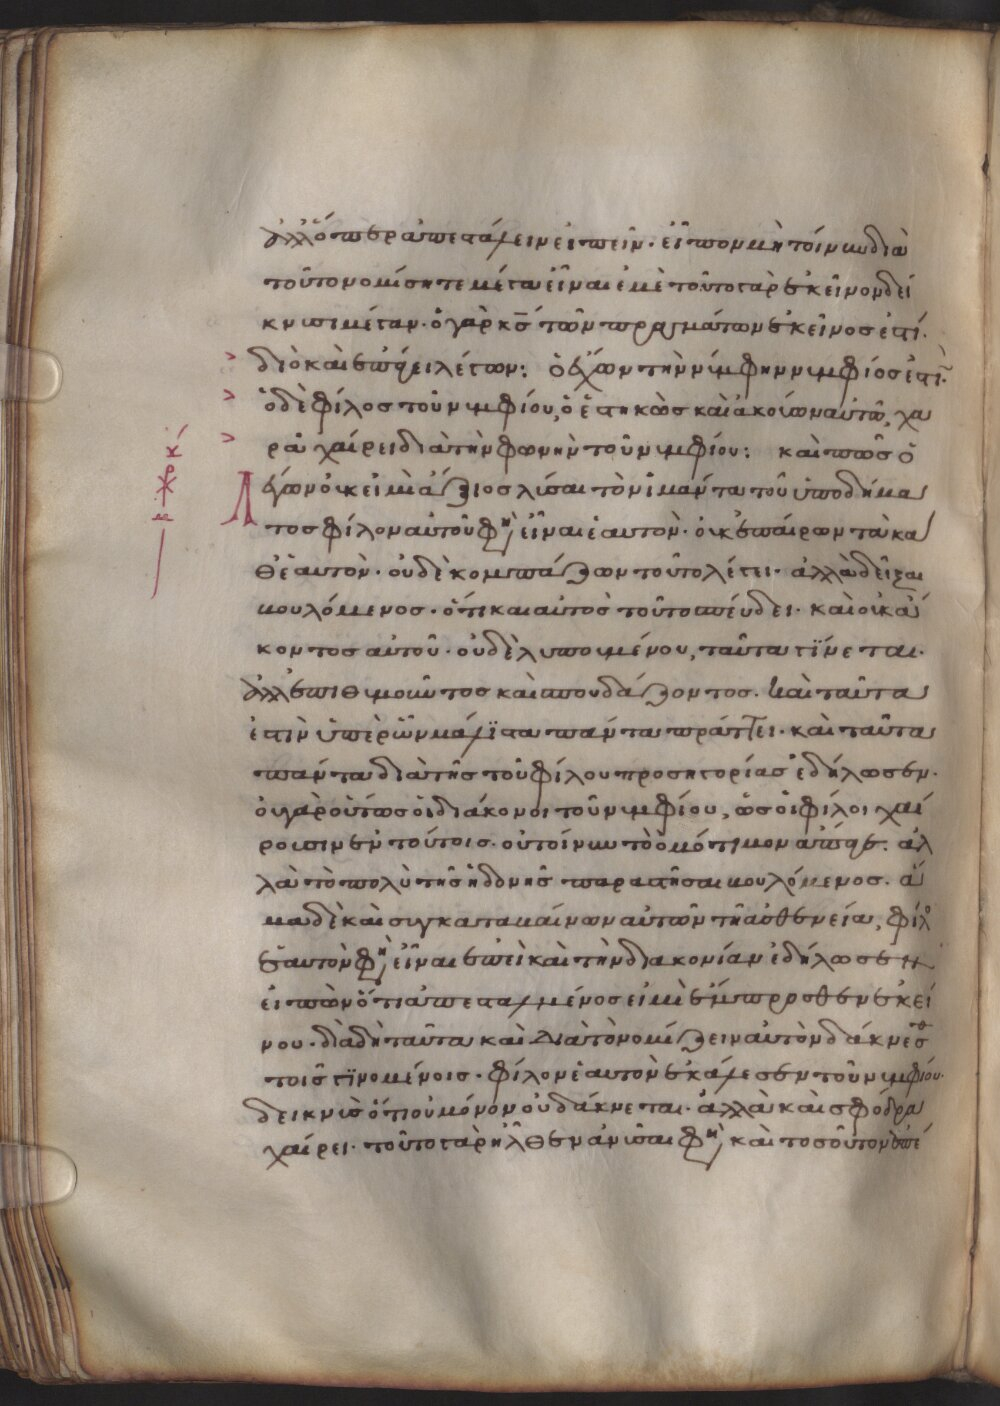 ἀλλ' ὅπερ ἀπεστάλην εἰπεῖν· εἶπον μὴ τοίνυν διὰ
τοῦτο νομίσητε μέγαν εἶναι ἐμὲ τοῦτο γὰρ ἐκεῖνον δεί
κνυσι μέγαν· ὁ γὰρ κς τῶν πραγμάτων ἐκεῖνος ἐστί·
διὸ καὶ ἐπήγειλε λέγων: ὁ ἔχων τὴν νύμφην νυμφίος ἐστὶ·
ὁ δὲ φίλος τοῦ νυμφίου, ὁ ἑστηκὼς καὶ ἀκούων αὐτῶ, χα
ρᾶ χαίρει διὰ τὴν φωνὴν τοῦ νυμφίου: καὶ πῶς ὁ
λέγων οὐκ εἰμὶ ἄξιος λῦσαι τὸν ἱμάντα τοῦ ὑποδήμα
τος φίλον αὐτοῦ φη εἶναι ἑαυτὸν· οὐκ ἐπαίρων τὰ κα
θ' ἑαυτὸν· οὐδὲ κομπάζων τοῦτο λέγει· ἀλλὰ δεῖξαι
βουλόμενος· ὅτι καὶ αὐτὸς τοῦτο σπεύδει· καὶ οὐκ ἄ
κοντος αὐτοῦ· οὐδὲ λυπουμένου, ταῦτα γίνεται·
ἀλλ' ἐπιθυμοῦντος καὶ σπουδάζοντος. καὶ ταῦτα
ἐστὶν ὑπὲρ ὧν μάλιστα πάντα πράττει· καὶ ταῦτα
πάντα διὰ τῆς τοῦ φίλου προσηγορίας ἐδήλωσεν·
οὐ γὰρ οὕτως οἱ διάκονοι τοῦ νυμφίου, ὡς οἱ φίλοι χαί
ρουσιν ἐν τούτοις· οὐ τοίνυν τὸ ὁμότιμον ἄπαγε· ἀλ
λὰ τὸ πολὺ τῆς ἡδονῆς παραστῆσαι βουλόμενος· ἅ
μα δὲ καὶ συγκαταβαίνων αὐτῶν τῆ ἀσθενεία, φίλο
ἑαυτὸν φη εἶναι ἐπεὶ καὶ τὴν διακονίαν ἐδήλωσεν
εἰπὼν ὅτι ἀπεσταλμένος εἰμὶ ἔμπροσθεν ἐκεί
νου· διὰ δὴ ταῦτα καὶ διὰ τὸ νομίζειν αὐτὸν δάκνεσθ
τοῖς γινομένοις· φίλον ἑαυτὸν ἐκάλεσεν τοῦ νυμφίου·
δεικνὺς ὅτι οὐ μόνον οὐ δάκνεται· ἀλλὰ καὶ σφόδρα
χαίρει· τοῦτο γὰρ ἦλθεν ἀνύσαι φη καὶ τοσοῦτον ἀπέ